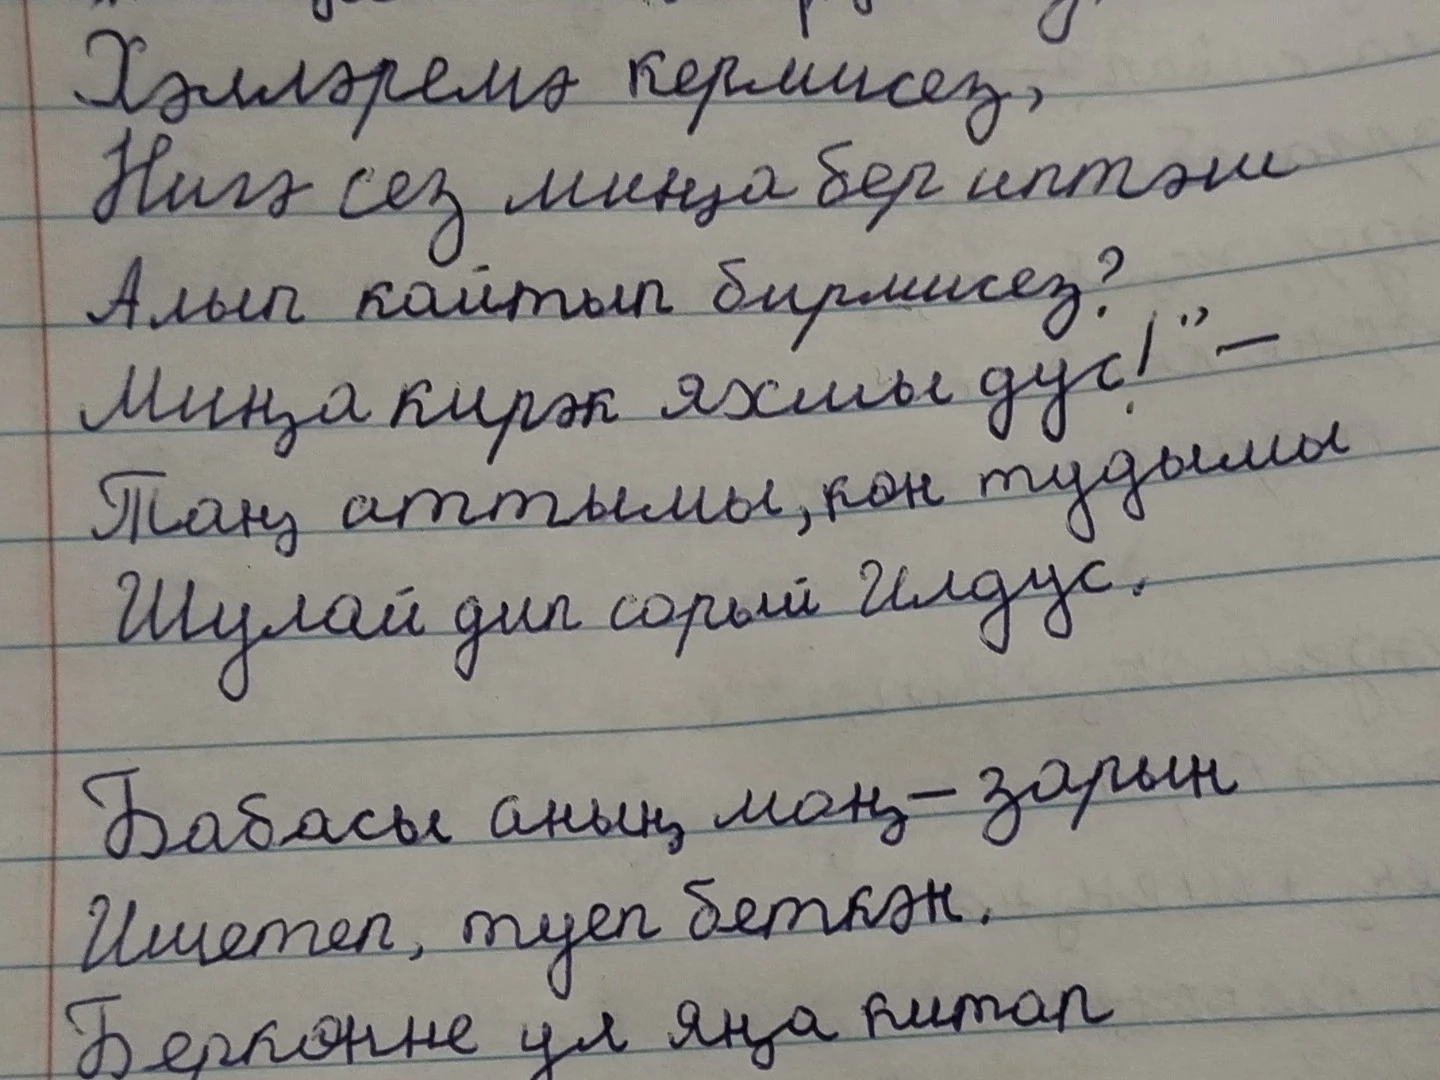 Хәлләремә кермисез,
Нигә сез миңа бер иптәш
Алып кайтып бирмисез?
Миңа кирәк яхшы дус!" –
Таң аттымы, көн тудымы
Шулай дип сорый Илдус.
Бабасы аның моң – зарын
Ишетеп, туеп беткән.
Беркөнне ул яңа китап